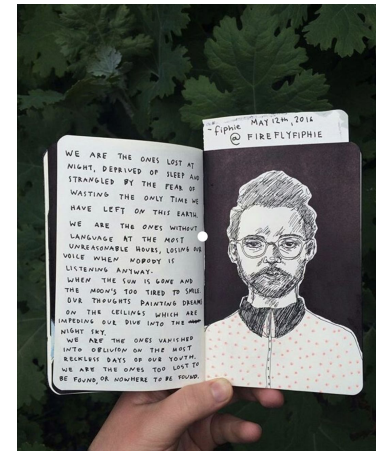 WE ARE THE ONES LOST AT
NIGHT, DEPRIVED OF SLEEP AND
STRANGLED BY THE FEAR OF
WASTING THE ONLY TIME WE
HAVE LEFT ON THIS EARTH.
WE ARE THE ONES WITHOUT
LANGUAGE AT THE MOST
UNREASONABLE HOURS, LOSING OUR
VOICE WHEN NOBODY IS
LISTENING ANYWAY.
WHEN THE SUN IS GONE AND
THE MOON'S TOO TIRED TO SMILE
OUR THOUGHTS PAINTING DREAMS
ON THE CEILINGS WHICH ARE
IMPEDING OUR DIVE INTO THE
NIGHT SKY.
WE ARE THE ONES VANISHED
INTO OBLIVION ON THE MOST
RECKLESS DAYS OF OUR YOUTH.
WE ARE THE ONES TOO LOST TO
BE FOUND, OR NOWHERE TO BE FOUND.
~fiphie MAY 12th, 2016
@ FIREFLYFIPHIE